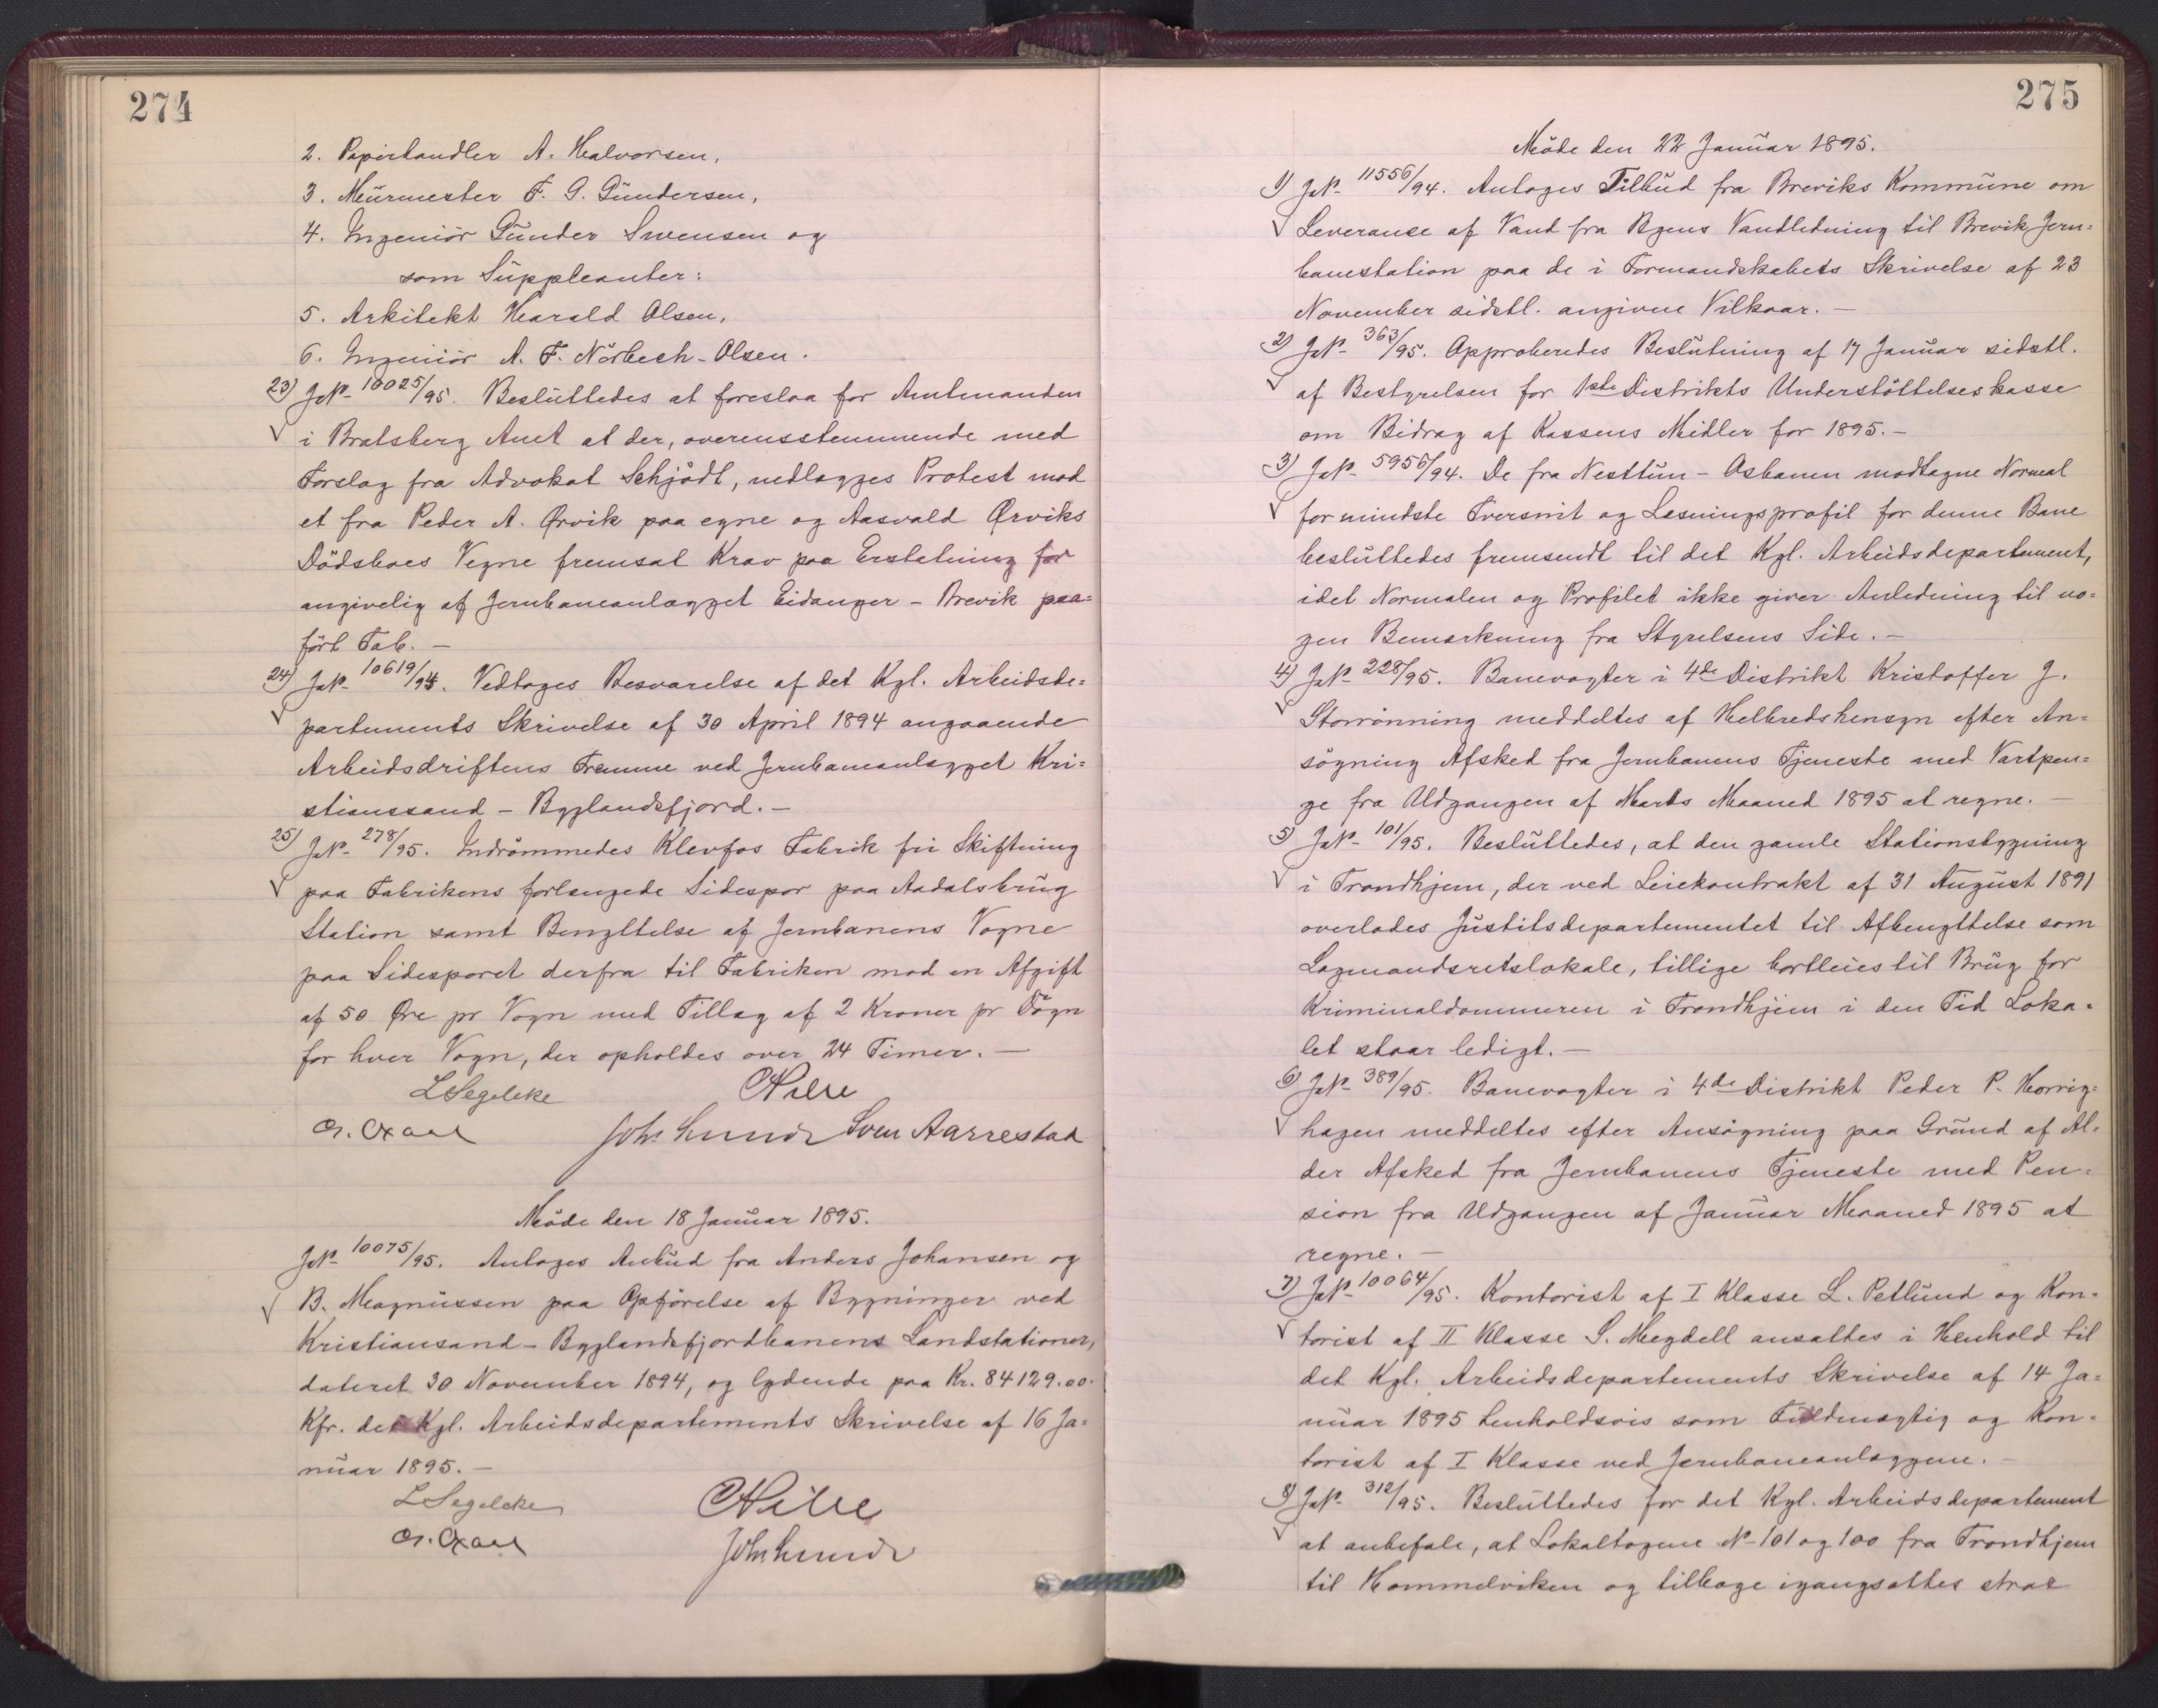 274
2. Papirhandler A. Halvorsen,
3. Muürmester F. G. Gundersen,
4. Ingeniör Gunder Svensen og
som Suppleanter:
5. Arkitekt Harald Olsen,
6. Ingeniör A. F. Nörbech-Olsen.
23) JNo 10025/95. Besluttedes at foreslaa for Amtmanden
i Bratsberg Amt at der, overensstemmende med
Forslag fra Advokat Schjödt, nedlægges Protest mod
et fra Peder A. Ørvik paa egne og Aasvald Ørviks
Dödsboes Vegne fremsat Krav paa Erstatning for
angivelig af Jernbaneanlægget Eidanger - Brevik paa=
fört Tab. —
24) JNo 10619/94. Vedtoges Besvarelse af det Kgl. Arbeidsde=
partements Skrivelse af 30 April 1894 angaaende
Arbeidsdriftens Fremme ved Jernbaneanlægget Kri=
stianssand - Byglandsfjord. —
25) JNo 278/95. Indrömmedes Klevfos Fabrik fri Skiftning
paa Fabrikens forlængede Sidespor paa Aadalsbrug
Station samt Benyttelse af Jernbanens Vogne
paa Sidesporet derfra til Fabriken mod en Afgift
af 50 Øre pr Vogn med Tillæg af 2 Kroner pr Dögn
for hver Vogn, der opholdes over 24 Timer. —
LSegelcke CNilse
John Lund Sven Aarrestad
Möde den 18 Januar 1895.
JNo 10075/95. Antoges Anbud fra Anders Johansen og
B. Magnussen paa Opförelse af Bygninger ved
Kristiansand - Byglandsfjordbanens Landstationer,
dateret 30 November 1894, og lydende paa Kr. 84129.00.
Kfr. det Kgl. Arbeidsdepartements Skrivelse af 16 Ja=
nuar 1895. —
LSegelcke CNilse
John Lund
275
Möde den 22 Januar 1895.
1) JNo 11556/94. Antoges Tilbud fra Breviks Kommune om
Leveranse af Vand fra Byens Vandledning til Brevik Jern=
banestation paa de i Formandskabets Skrivelse af 23
November sidstl. angivne Vilkaar. —
2) JNo 363/95. Approberedes Beslutning af 17 Januar sidstl.
af Bestyrelsen for 1ste Distrikts Understöttelseskasse
om Bidrag af Kassens Midler for 1895. —
3) JNo 5956/94. De fra Nesttun - Osbanen modtagne Normal
for mindste Tversnit og Lesningsprofil for denne Bane
besluttedes fremsendt til det Kgl. Arbeidsdepartement,
idet Normalen og Profilet ikke giver Anledning til no=
gen Bemærkning fra Styrelsens Side. —
4) JNo 228/95. Banevogter i 4de Distrikt Kristoffer J.
Storrönning meddeltes af Helbredshensyn efter An=
sögning Afsked fra Jernbanens Tjeneste med Vartpen=
ge fra Udgangen af Marts Maaned 1895 at regne. —
5) JNo 101/95. Besluttedes, at den gamle Stationsbygning
i Trondhjem, der ved Leiekontrakt af 31 August 1891
overlodes Justitsdepartementet til Afbenyttelse som
Lagmandsretslokale, tillige bortleies til Brug for
Kriminaldommeren i Trondhjem i den Tid Loka=
let staar ledigt. —
6) JNo 389/95. Banevogter i 4de Distrikt Peder P. Horrig=
hagen meddeltes efter Ansögning paa Grund af Al=
der Afsked fra Jernbanens Tjeneste med Pen=
sion fra Udgangen af Januar Maaned 1895 at
regne. —
7) JNo 10064/95. Kontorist af I Klasse L. Petlund og Kon=
torist af II Klasse S. Megdell ansattes i Henhold til
det Kgl. Arbeidsdepartements Skrivelse af 14 Ja=
nuar 1895 henholdsvis som Fuldmægtig og Kon=
torist af I Klasse ved Jernbaneanlæggene. —
8) JNo 312/95. Besluttedes for det Kgl. Arbeidsdepartement
at anbefale, at Lokaltogene No 101 og 100 fra Trondhjem
til Hommelviken og tilbage igangsættes strax